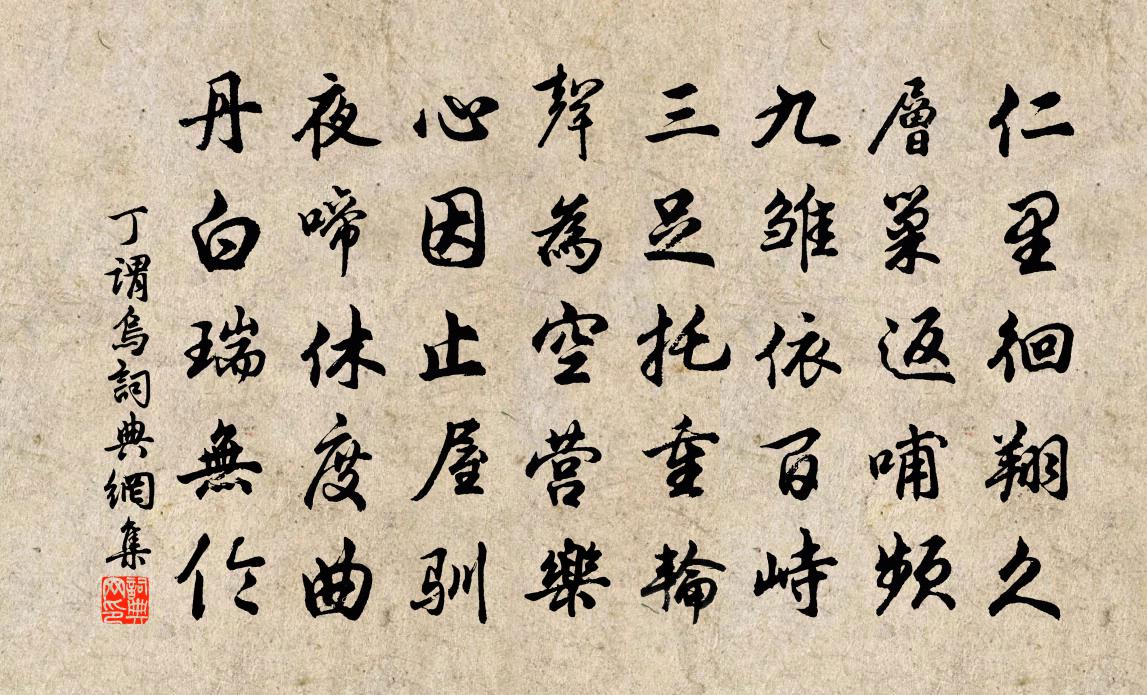 仁里徊翔久
層巢返哺頻
九雏依百峙
三足托重輪
聲為空营樂
心因止屋馴
夜啼休度曲
丹白瑞無伦
丁謂烏詞典網集
詞典網印